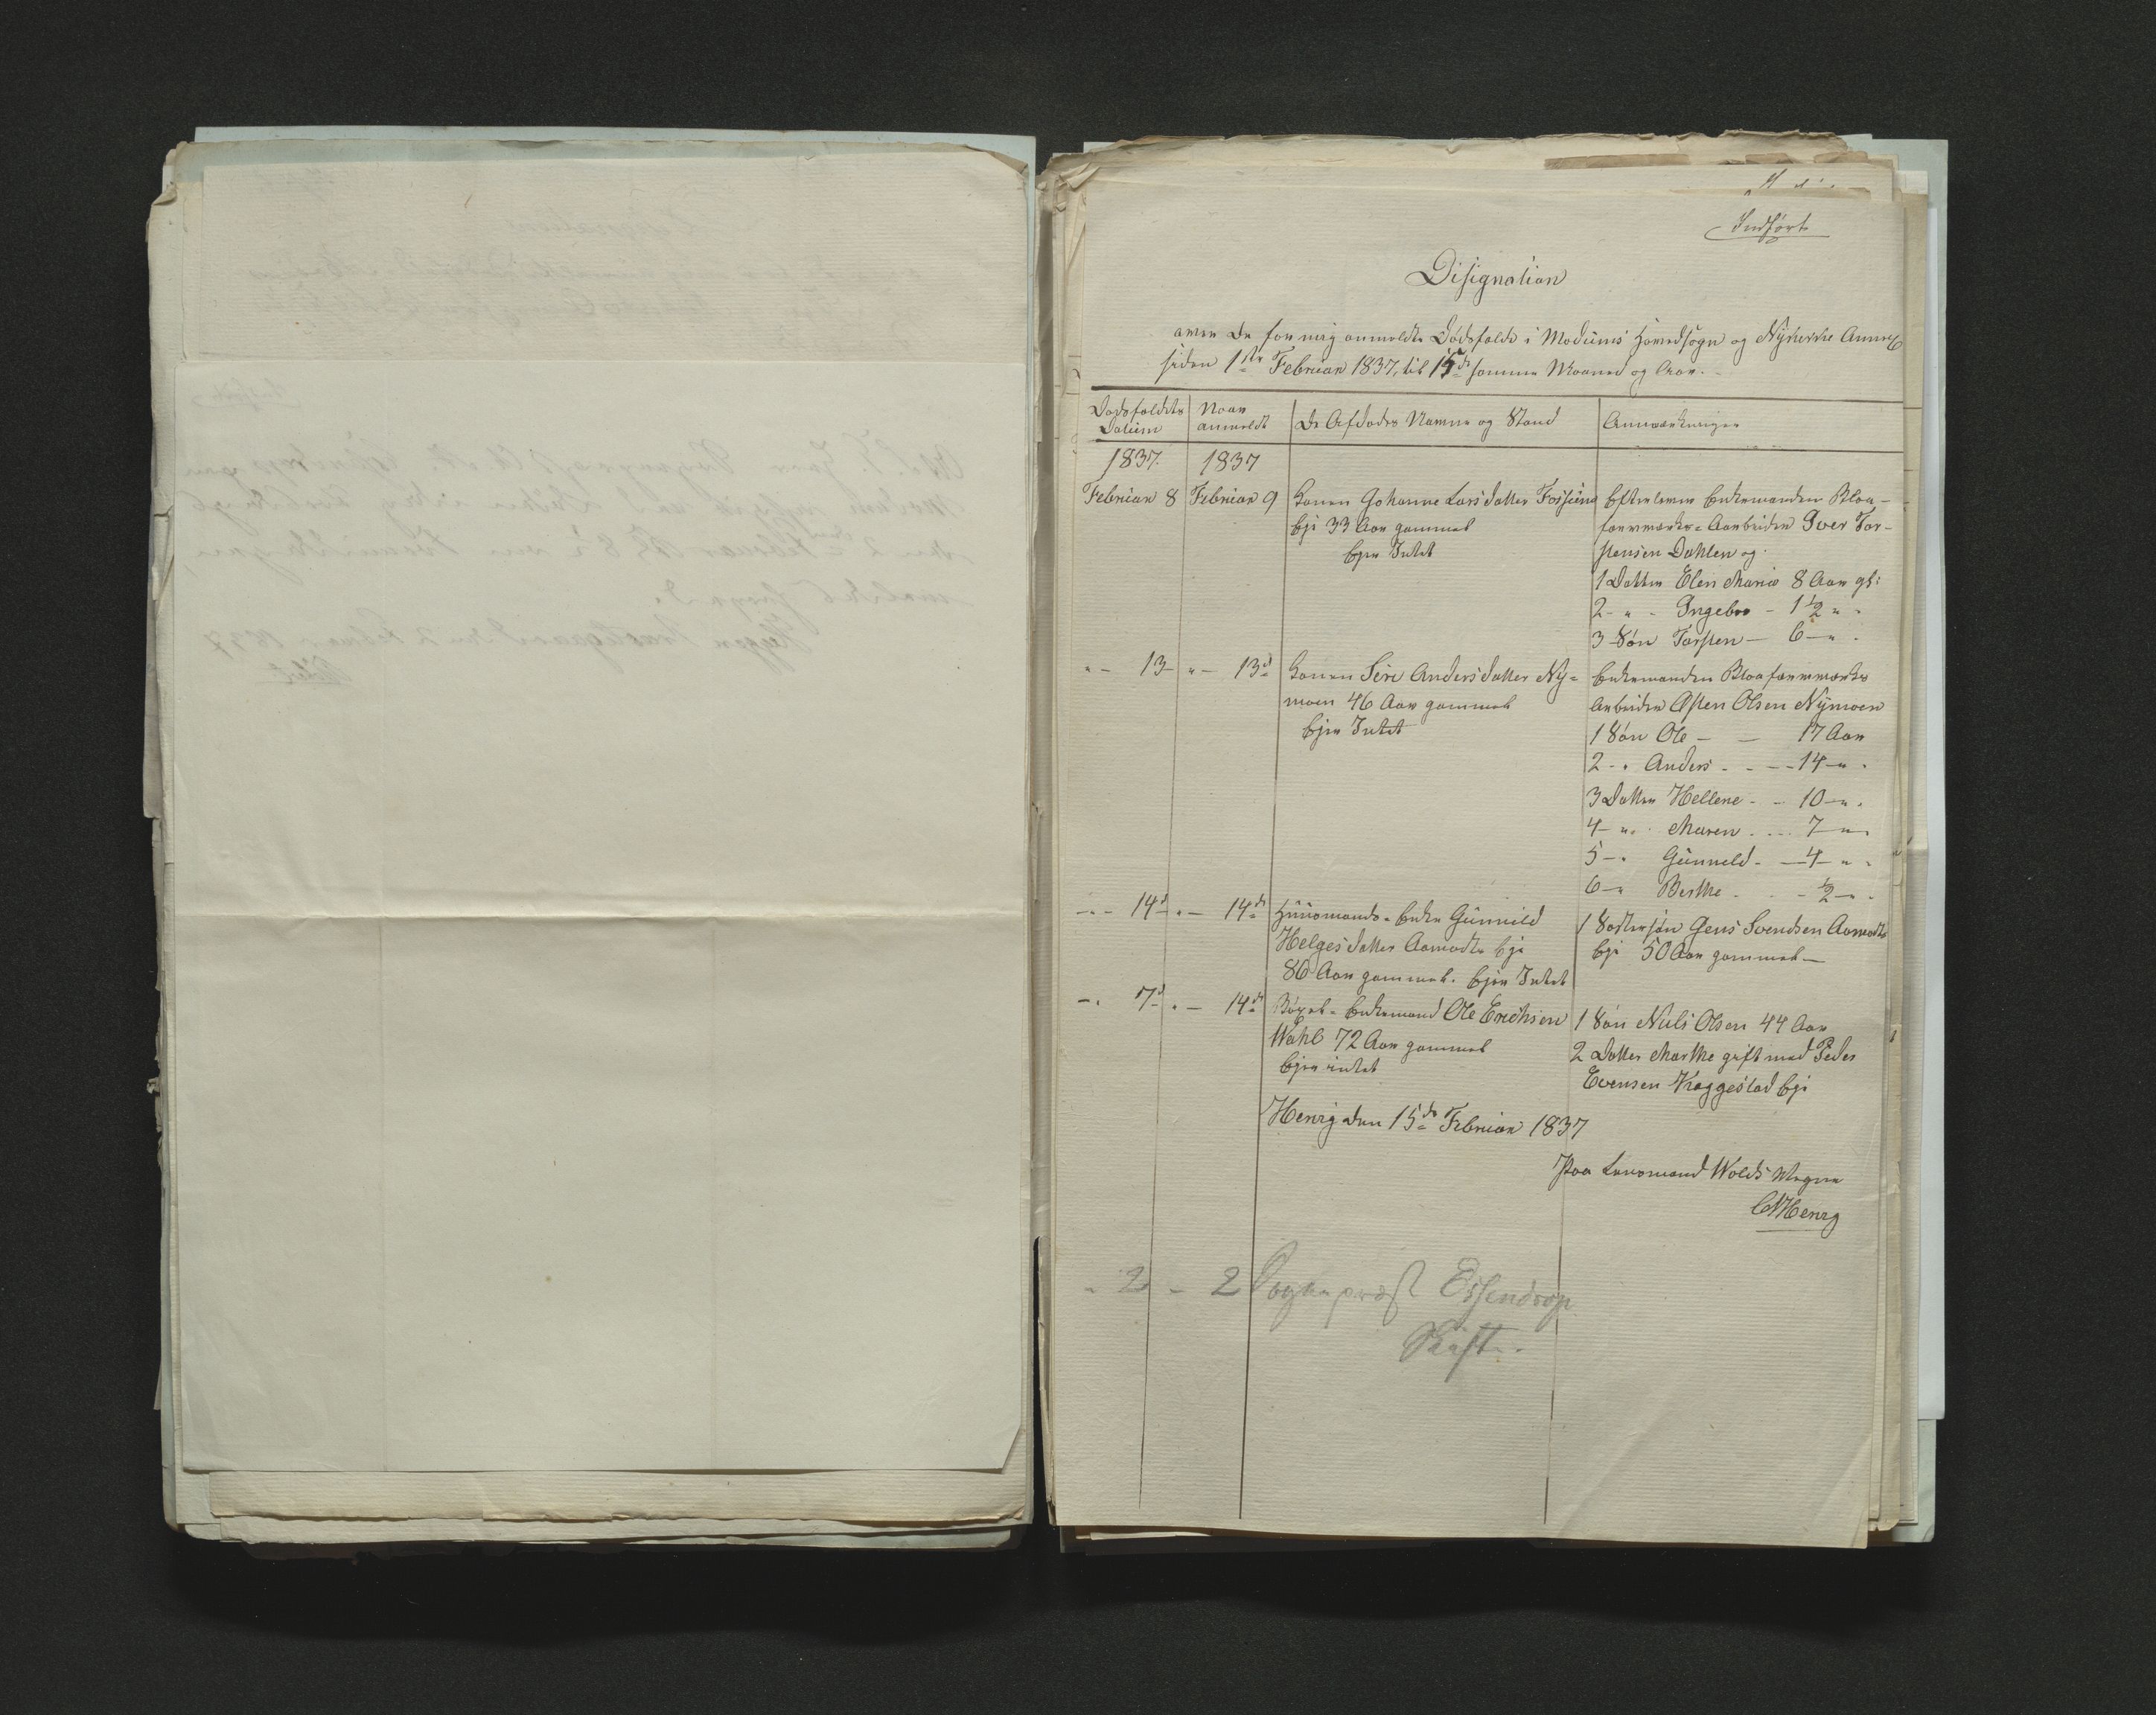 Indført
Disignation
over de for mig anmeldte Dødsfalde i Modums Hovedsogn og Nykirke Annex
siden 1ste Februar 1837, til 15de samme Maaned og Aar.
Dødsfaldets Datum
Naar anmeldt
De Afdødes Navne og Stand
Anmærkninger
1837. 1837
Februar 8 Februar 9 Konen Johanne Larsdatter Fossum
Eje 33 Aar gammel
Ejer Intet
Efterlever Enkemanden Blaa-
farveværks-Arbeider Iver Tor-
stensen Dahlen og
1 Datter Elen Maria 8 Aar gl:
2 - " - Ingebor - 1 1/2 " -
3 Søn Torsten - 6 - " -
" - 13 - " - 13d Konen Siri Andersdatter Ny-
moen 46 Aar gammel
Ejer Intet
Enkemanden Blaafarveværks
Arbeider Asten Olsen Nymoen
1 Søn Ole - - 17 Aar
2 - " Anders - - - 14 - " -
3 Datter Hellene - - 10 - " -
4 - " - Maren - - - 7 - " -
5 - " Gunneld - - 4 - " -
6 - " Berthe - - - 1/2 - " -
- " - 14d - " - 14de Huusmands-Enke Gunnild
Helgesdatter Aamodte Eje
86 Aar gammel. Ejer Intet
1 Søstersøn Jens Svendsen Aamodte
Eje 50 Aar gammel -
- " 7d - " - 14de Bøxel-Enkemand Ole Erichsen
Wahl 72 Aar gammel
Ejer intet
1 Søn Niels Olsen 44 Aar
2 Datter Marthe gift med Peder
Evensen Kaggestad Eje
Henrig den 15de Februar 1837
Paa Lensmand Wolds Vegne
CHHenrg
- 2 - 2 Sognepræst Essendrop
Skift.